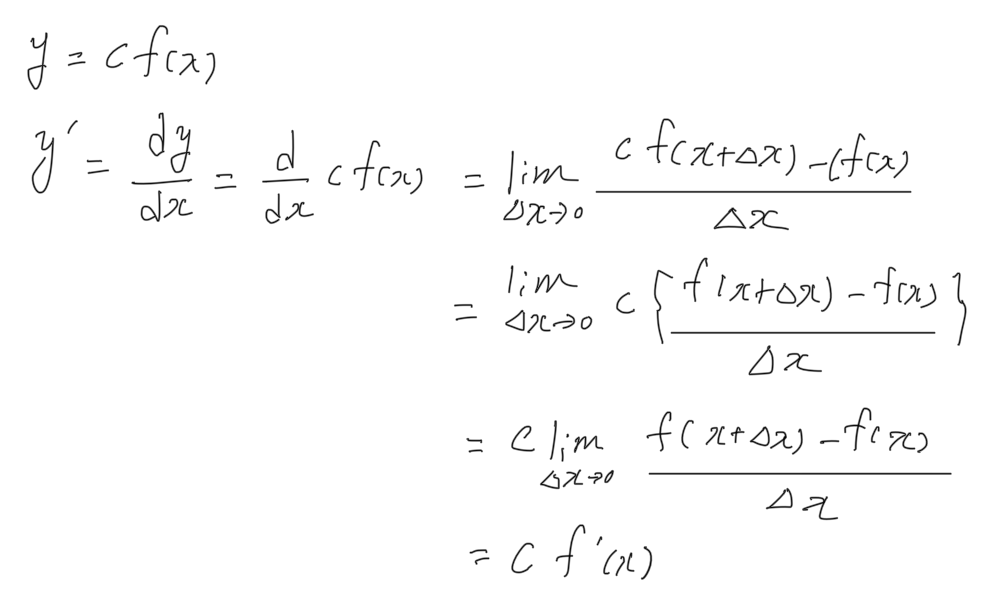 y = c f(x)
y' = dy/dx = d/dx c f(x) = lim Δx→0 (c f(x+Δx) - c f(x))/Δx
= lim Δx→0 c { (f(x+Δx) - f(x))/Δx }
= c lim Δx→0 (f(x+Δx) - f(x))/Δx
= c f'(x)